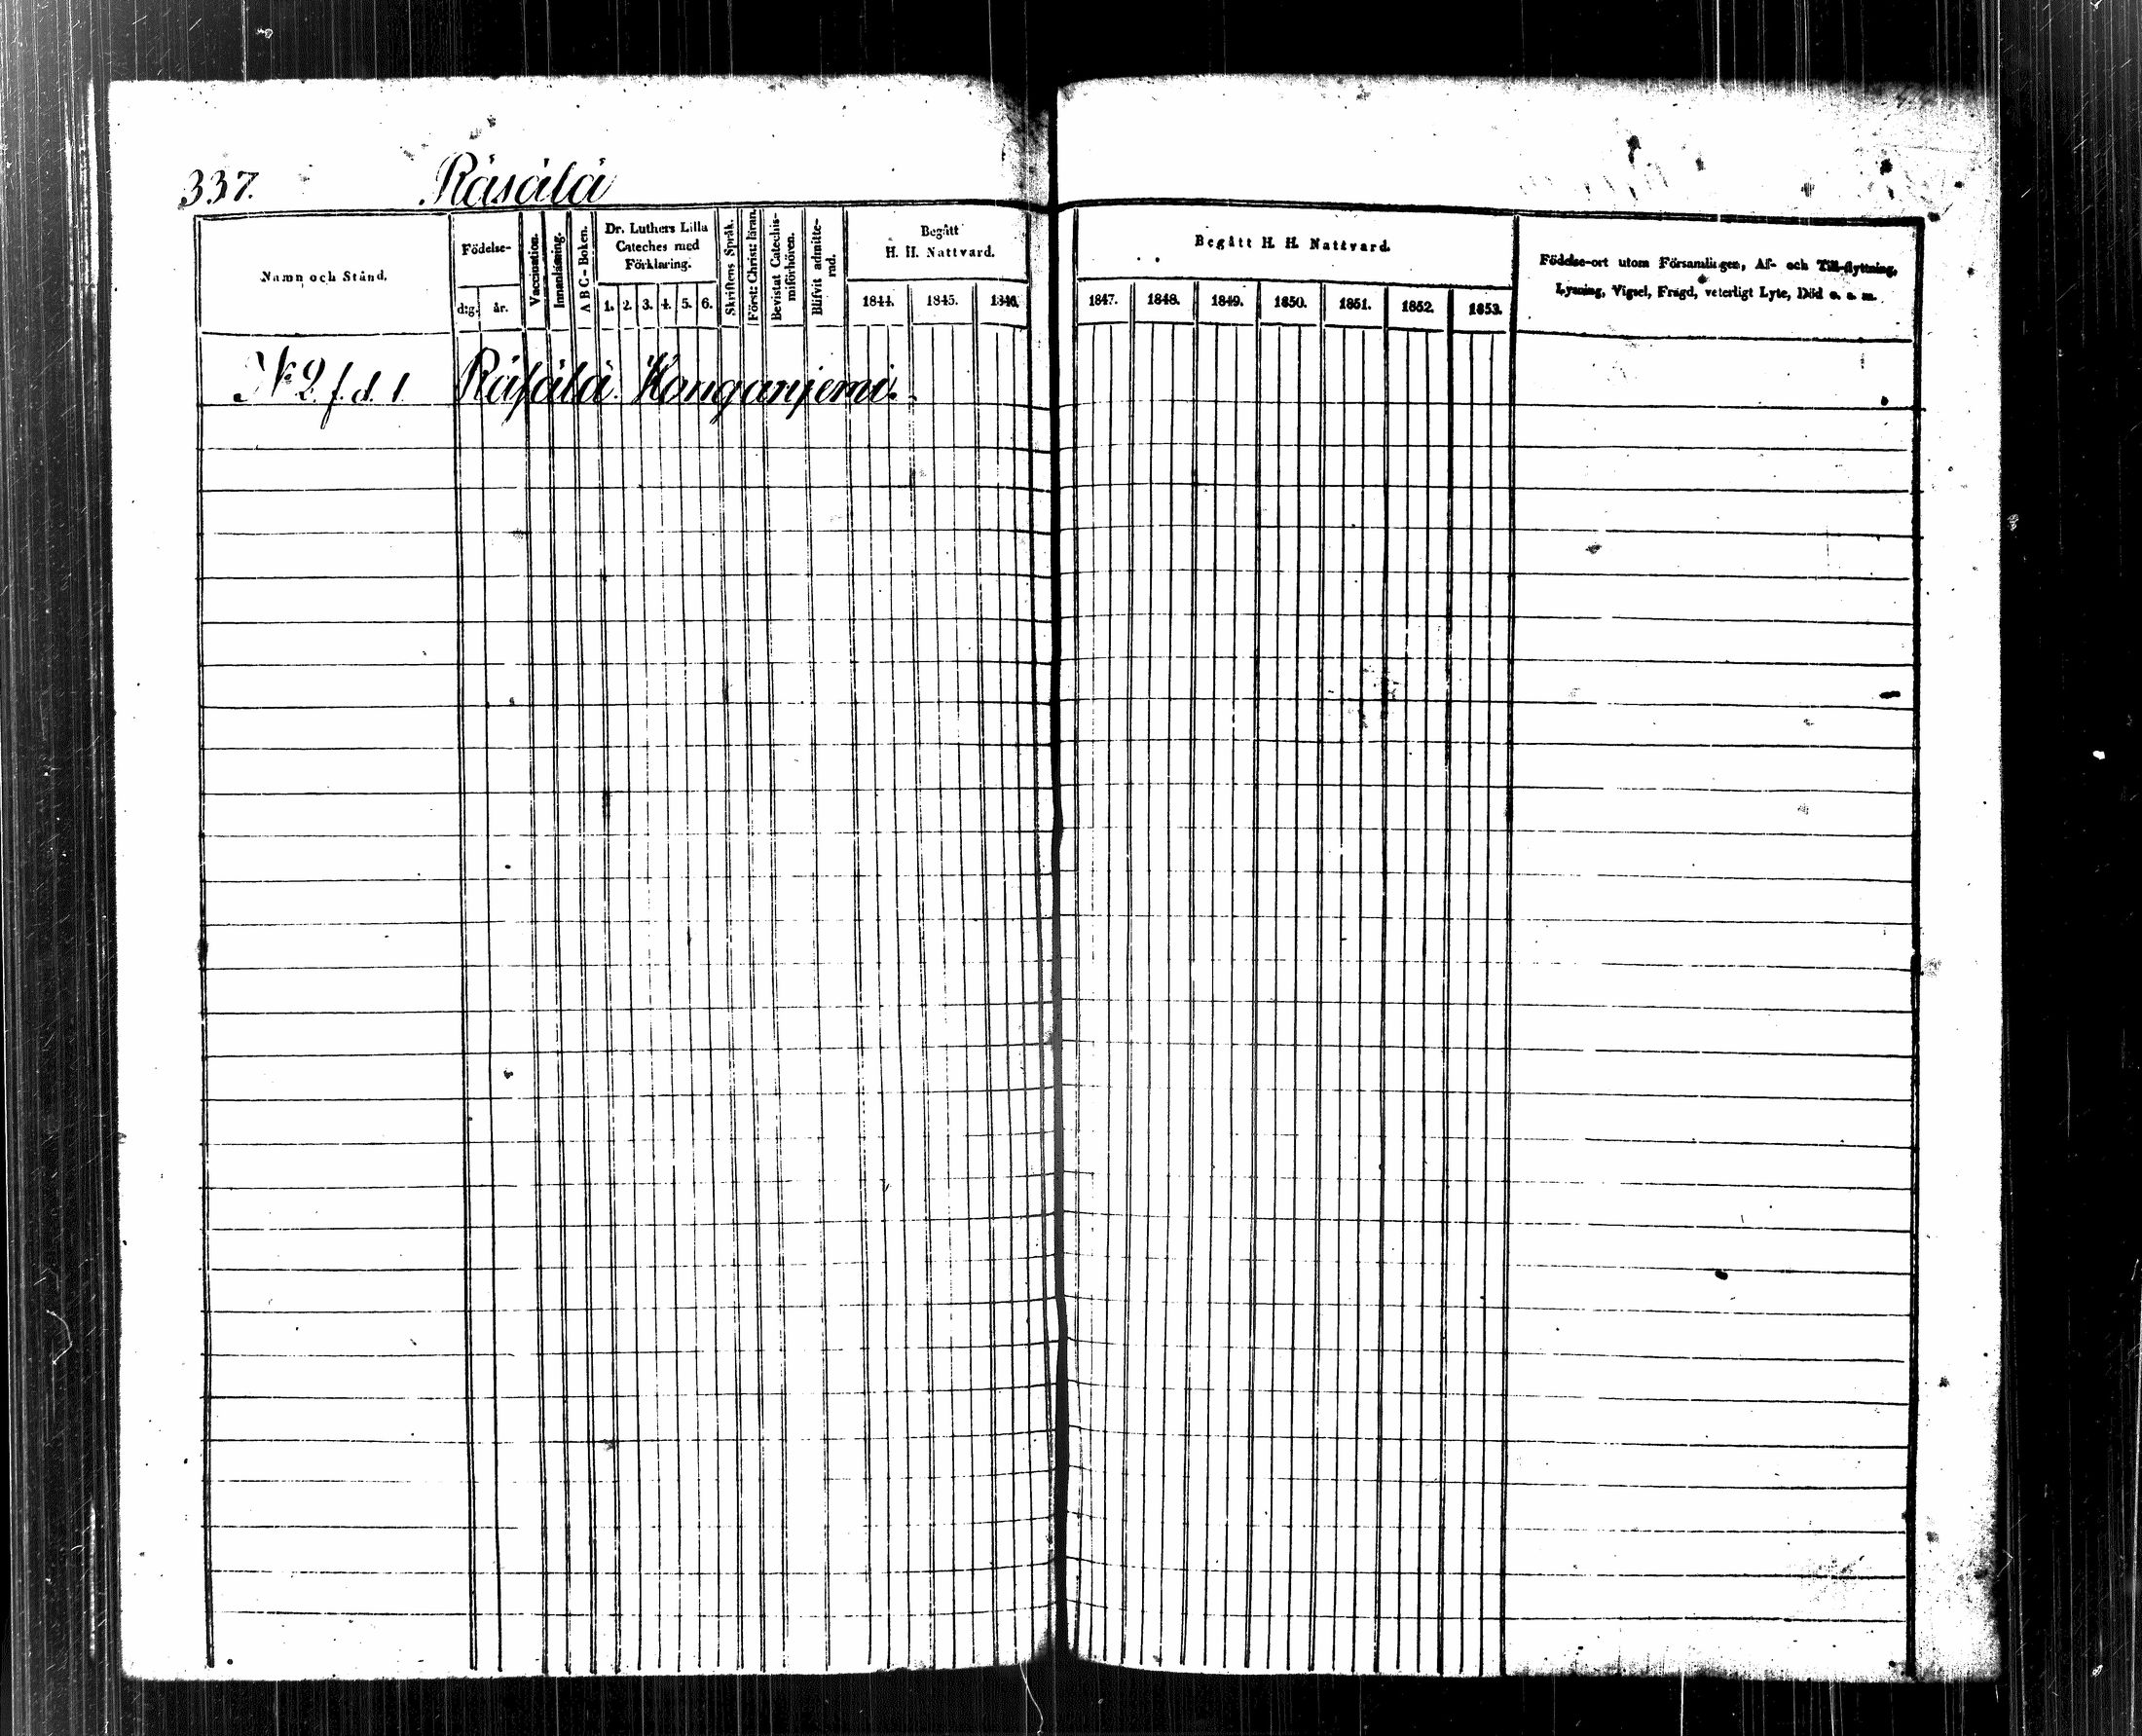 337. Räsälä
Namn och Stånd.
Födelse-
d:g. år.
Vaccination.
Innanläsning.
A B C - Boken.
Dr. Luthers Lilla
Cateches med
Förklaring.
1. 2. 3. 4. 5. 6.
Skriftens Språk.
Först: Christ: läran.
Bevistat Catechis-
misförhören.
Blifvit admitte-
rad.
Begått
H. H. Nattvard.
1844. 1845. 1846.
Begått H. H. Nattvard.
1847. 1848. 1849. 1850. 1851. 1852. 1853.
Födelse-ort utom Församlingen, Af- och Till-flyttning,
Lysning, Vigsel, Frägd, veterligt Lyte, Död o. s. m.
N:o 2 f. d. 1 Räsälä Kanganjemi.